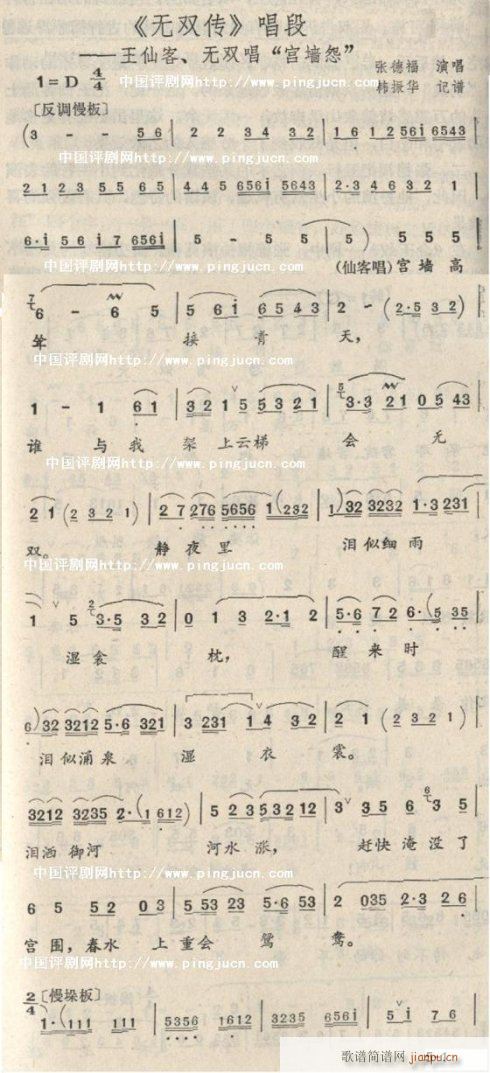 《无双传》唱段
——王仙客、无双唱“宫墙怨”
1=D 4/4
张德福 演唱
韩振华 记谱
中国评剧网http://www.pingjucn.com
〔反调慢板〕
(3 - - 5 6 | 2 2 3 4 3 2 | 1 6 1 2 5 6 i 6 5 4 3
中国评剧网http://www.pingjucn.com
2 1 2 3 5 5 6 5 | 4 4 5 6 5 6 i 5 6 4 3 | 2·3 4 6 3 2 1
6·i 5 6 i 7 6 5 6 i | 5 - 5 5 | 5 - 5) 5 5 5
中国评剧网http://www.pingjucn.com
(仙客唱)宫 墙 高
6 - 6 5 | 5 6 i 6 5 4 3 | 2 - (2·5 3 2)
耸 接 青 天,
中国评剧网http://www.pingjucn.com
1 - 1 6 1 | 3 2 1 5 5 3 2 1 | 3·3 2 1 0 5 4 3
谁 与 我 架 上 云 梯 会 无
中国评剧网http://www.pingjucn.com
2 1 (2 3 2 1) | 2 7 2 7 6 5 6 5 6 1 (2 3 2 | 1) 3 2 3 2 3 2 1·3 2 3 1
双。 静 夜 里 泪 似 细 雨
中国评剧网http://www.pingjucn.com
1 5 3·5 3 2 | 0 1 3 2·1 2 | 5·6 7 2 6·(5 3 5
湿 衾 枕, 醒 来 时
6) 3 2 3 2 1 2 5·6 3 2 1 | 3 2 3 1 1 4 3 2 | 2 1 (2 3 2 1)
泪 似 涌 泉 湿 衣 裳。
中国评剧网http://www.pingjucn.com
3 2 1 2 3 2 3 5 2·(1 6 1 2) | 5 2 3 5 3 2 1 2 | 3 3 5 6 3 5
泪 洒 御 河 河 水 涨, 赶 快 淹 没 了
中国评剧网http://www.pingjucn.com
6 5 5 2 0 3 | 5 5 3 5 6 3 2 | 2 0 3 5 2·3 2 6
宫 围,春 水 上 重 会 鸳 鸯。
中国评剧网http://www.pingjucn.com
2/4〔慢垛板〕
1·(1 1 1 1 1 1 | 5 3 5 6 1 6 1 2 | 3 2 3 5 6 5 6 i | 5 i 7 6
歌谱简谱网
jianpu.cn